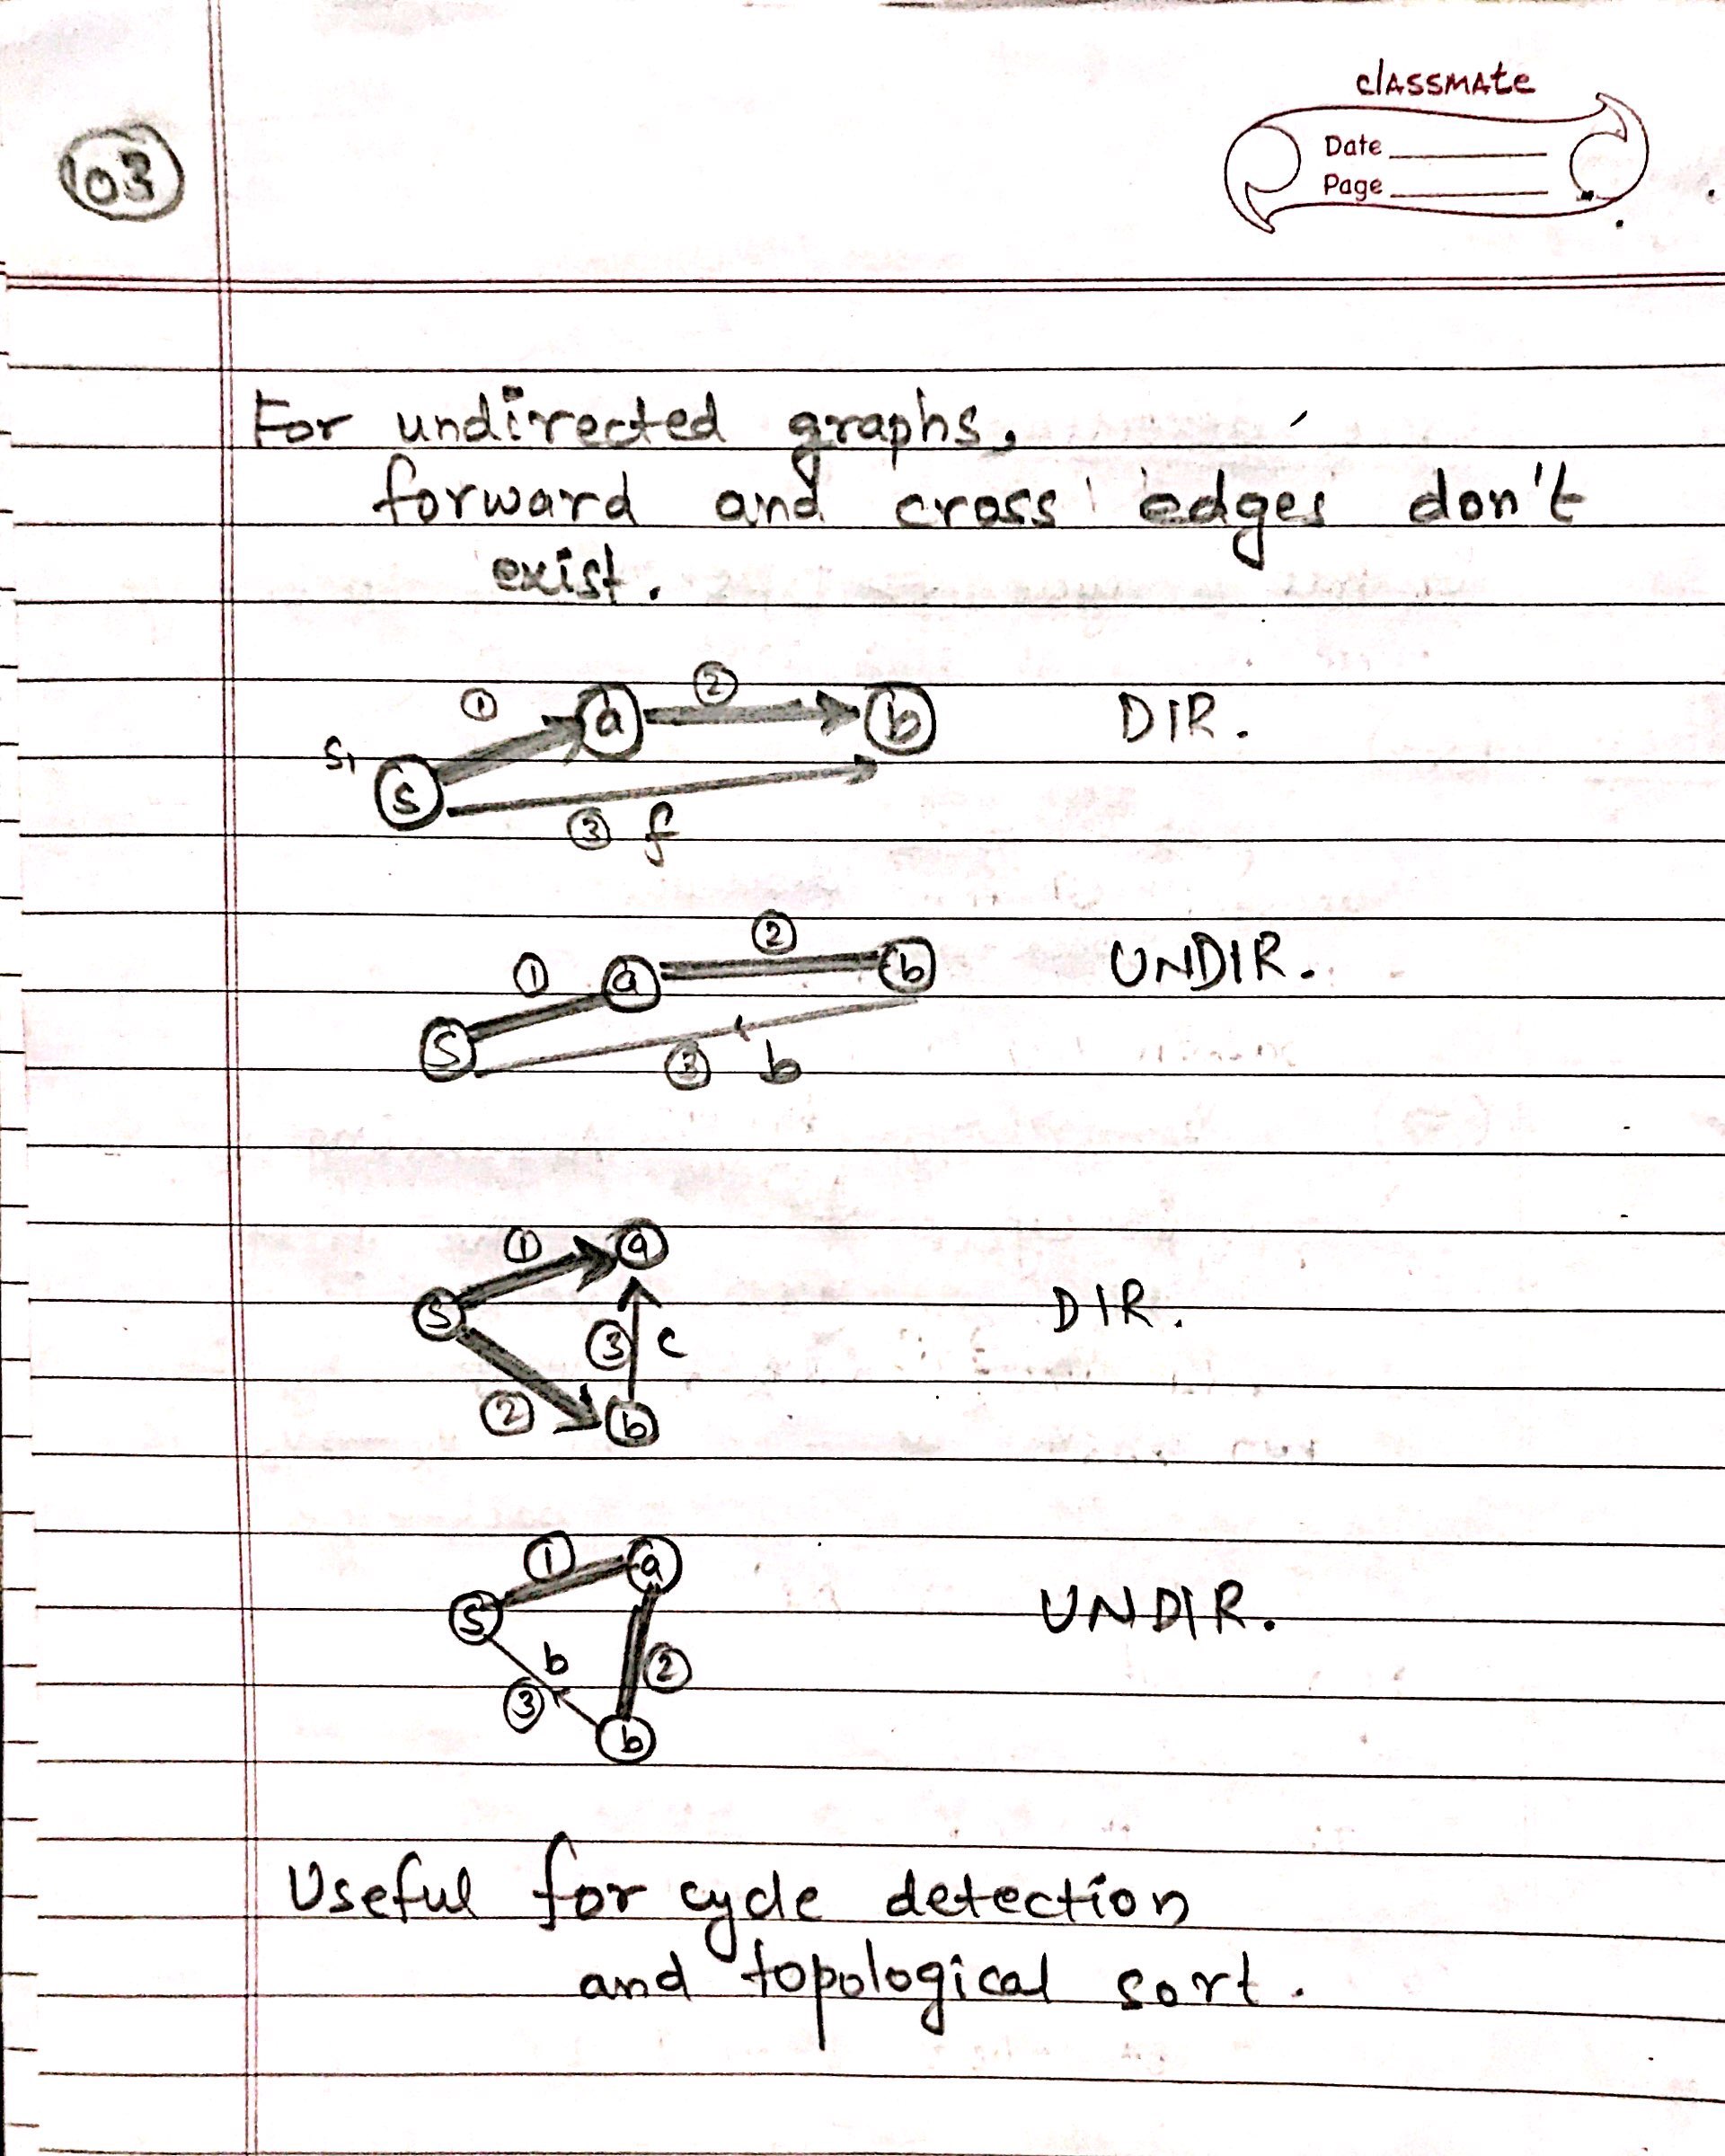 classmate
Date
Page
103
For undirected graphs,
forward and cross edges don't
exist.
① a ② b DIR.
S1
S
③ f
② 
① a b UNDIR.
S
③ b
① a
S DIR.
③ c
② b
① a
S UNDIR.
b ②
③
b
Useful for cycle detection
and topological sort.